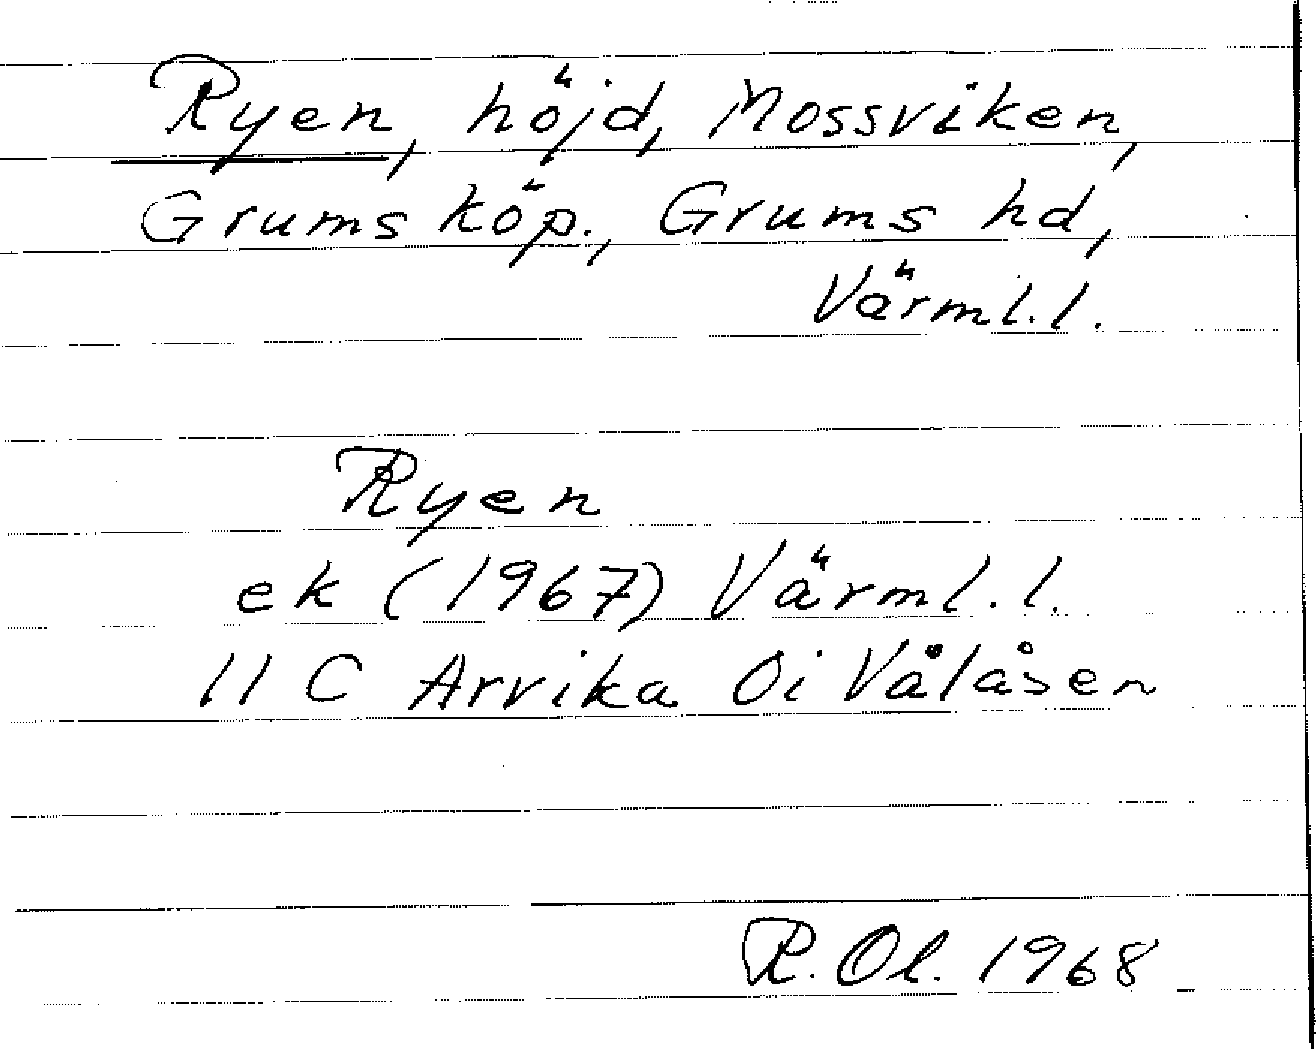 Ryen, höjd, Mossviken,
Grums köp., Grums hd,
Värml.l.
Ryen
ek (1967) Värml.l.
11 C Arvika 0i Vålåsen
R. Ol. 1968